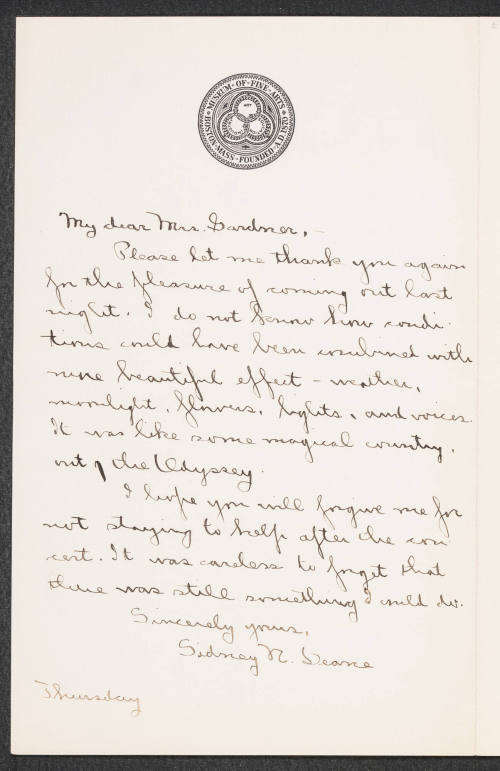 MUSEUM · OF · FINE · ARTS
BOSTON · MASS · FOUNDED · A.D. 1870
My dear Mrs. Gardner, -
Please let me thank you again
for the pleasure of coming out last
night. I do not know how condi-
tions could have been combined with
more beautiful effect - weather,
moonlight, flowers, lights, and voices.
It was like some magical country,
out of the Odyssey.
I hope you will forgive me for
not staying to help after the con
cert. It was careless to forget that
there was still something I could do.
Sincerely yours,
Sidney N. Deane
Thursday